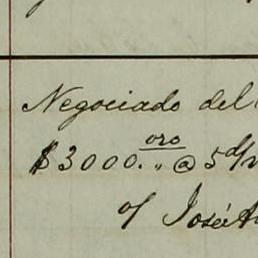 Negociado del
oro
$3000.. @ 5 d/v
o/ José A